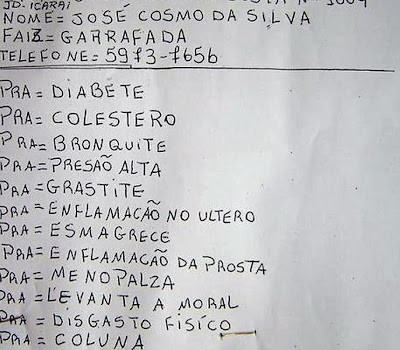 JD. ICARAI
NOME = JOSÉ COSMO DA SILVA
FAIZ = GARRAFADA
TELEFONE = 5973-7656
PRA = DIABETE
PRA = COLESTERO
PRA = BRONQUITE
PRA = PRESÃO ALTA
PRA = GRASTITE
PRA = ENFLAMACÃO NO ULTERO
PRA = ESMAGRECE
PRA = ENFLAMACÃO DA PROSTA
PRA = MENOPALZA
PRA = LEVANTA A MORAL
PRA = DISGASTO FISÍCO
PRA = COLUNA